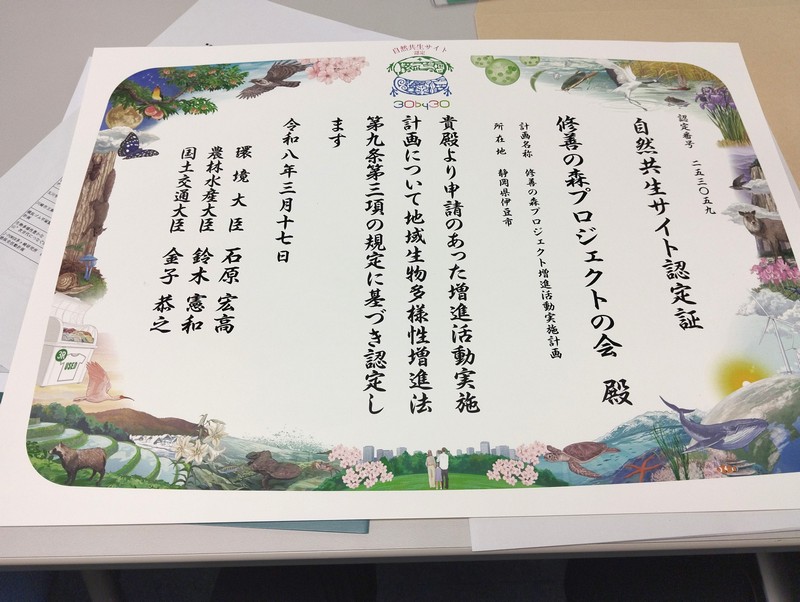 自然共生サイト
認定
30by30
認定番号 二五三〇五九
自然共生サイト認定証
修善の森プロジェクトの会 殿
計画名称 修善の森プロジェクト増進活動実施計画
所在地 静岡県伊豆市
貴殿より申請のあった増進活動実施
計画について地域生物多様性増進法
第九条第三項の規定に基づき認定し
ます
令和八年三月十七日
環境大臣 石原宏高
農林水産大臣 鈴木憲和
国土交通大臣 金子恭之
3R
USED